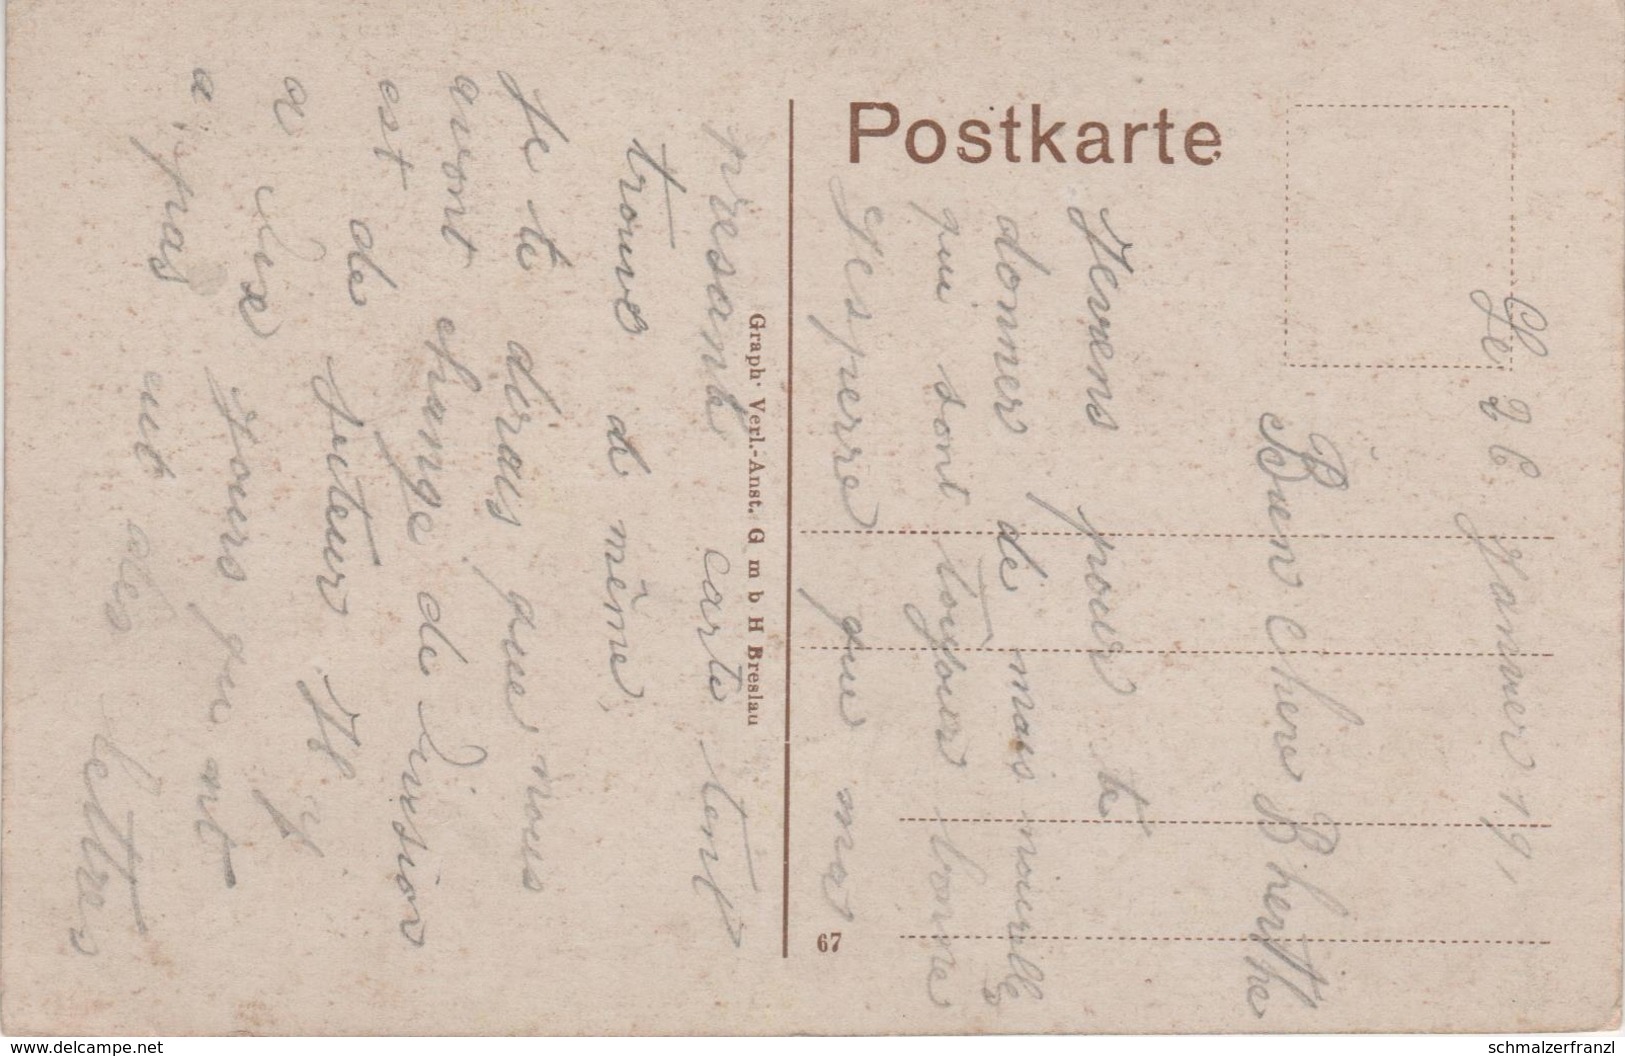 Postkarte
Le 26 Janvier 19,
Bien chere Bherthe
Je viens pour te
donner de mais nouvelles
qui sont toujour bonne
J'esperre que ma
presante carte tent
trouve de même,
Je te dirais que nous
avont change de division
est de secteur Il y
a dix Jours qu ont
a pas eut des lettres
Graph. Verl.-Anst. G m b H Breslau
67
www.delcampe.net
schmalzerfranzl